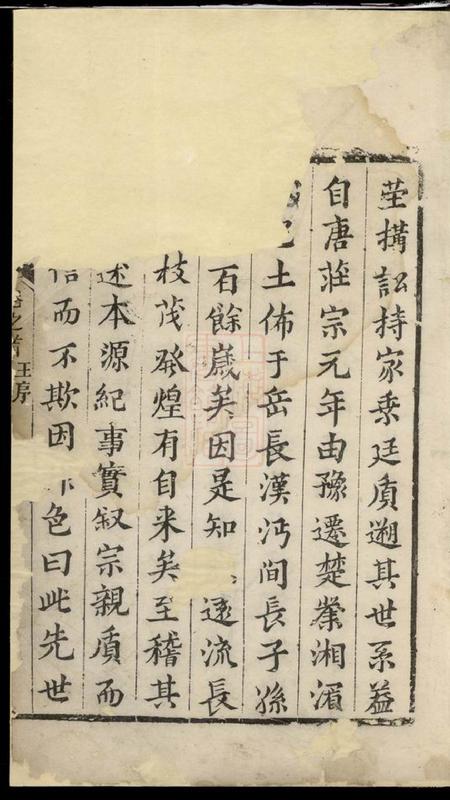 茔搆訟持家乗廷質遡其世系益
自唐莊宗元年由豫遷楚湘湄
土佈于岳長漢沔間長子孫
餘嵗矣因是知遠流長
枝茂發煌有自来矣至稽其
述本源紀事實叙宗親質而
而不欺因色曰此先世
之首 王序